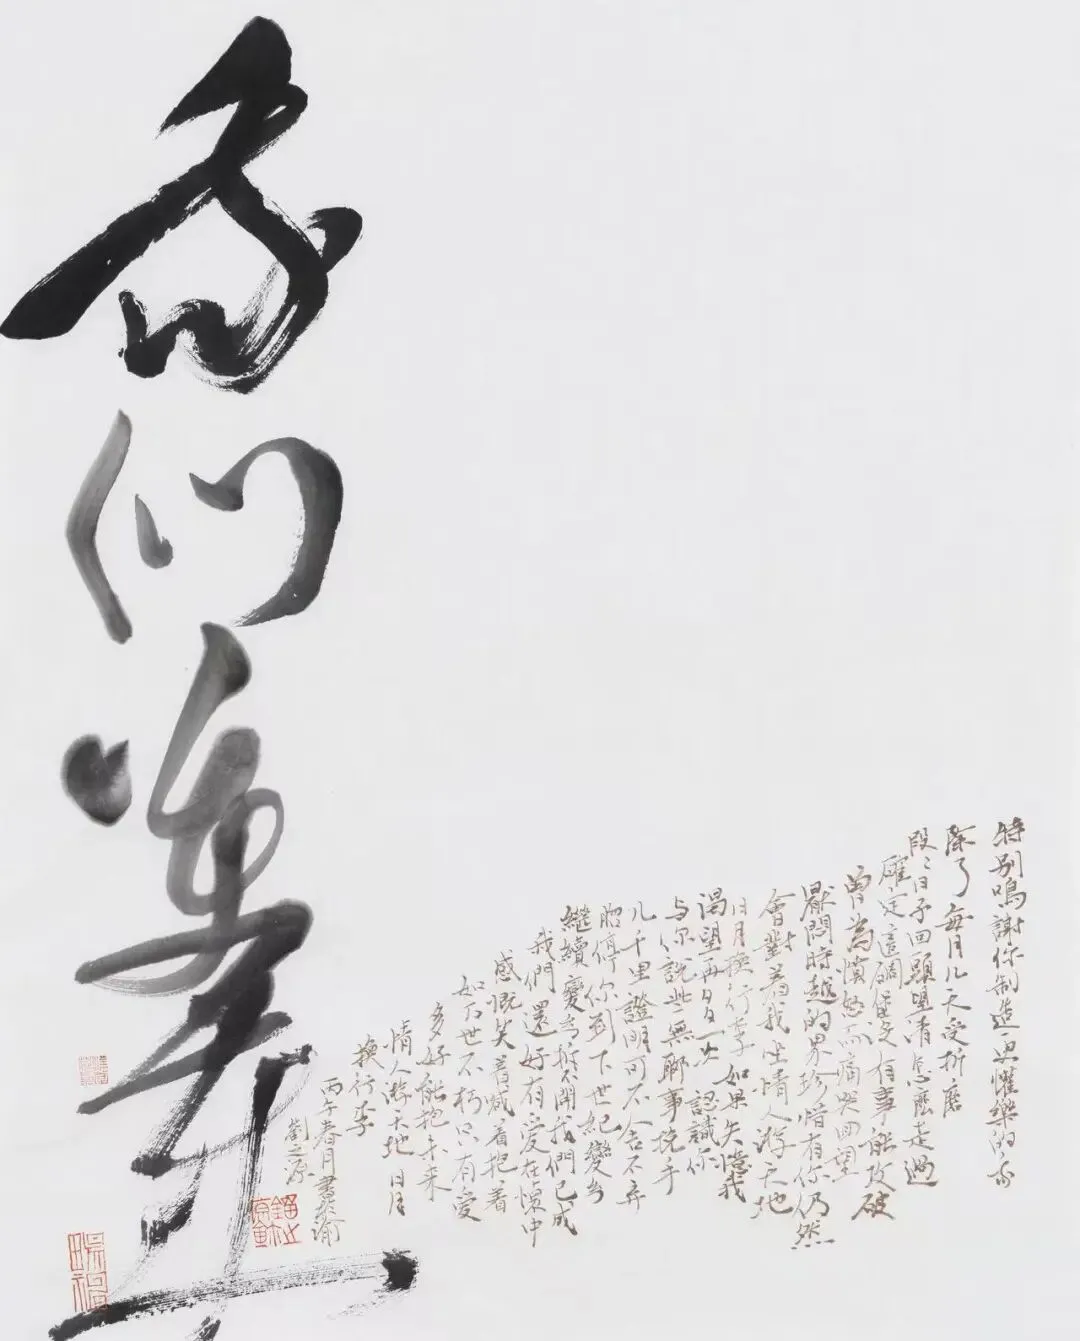 们
特別鳴謝你制造更懽樂的
除了每月几天受折磨
段〻日子回顧望清怎麼走過
確定這碉堡没有事能攻破
曾為憤怒而痛哭回望
厭悶時越的界珍惜有你仍然
會對着我坐情人游天地
日月換行李如果失憶我
渴望再多一次認識你
与你説些無聊事挽手
几千里證明可不舍不弃
你到下世紀變
繼續變為拆不開我們已成
我們還好有愛在懷中
感慨笑着喊着把着
如下世不朽只有愛
多好能抱未来
情人游天地 日月
換行李
丙午春月書於渝
劉之源